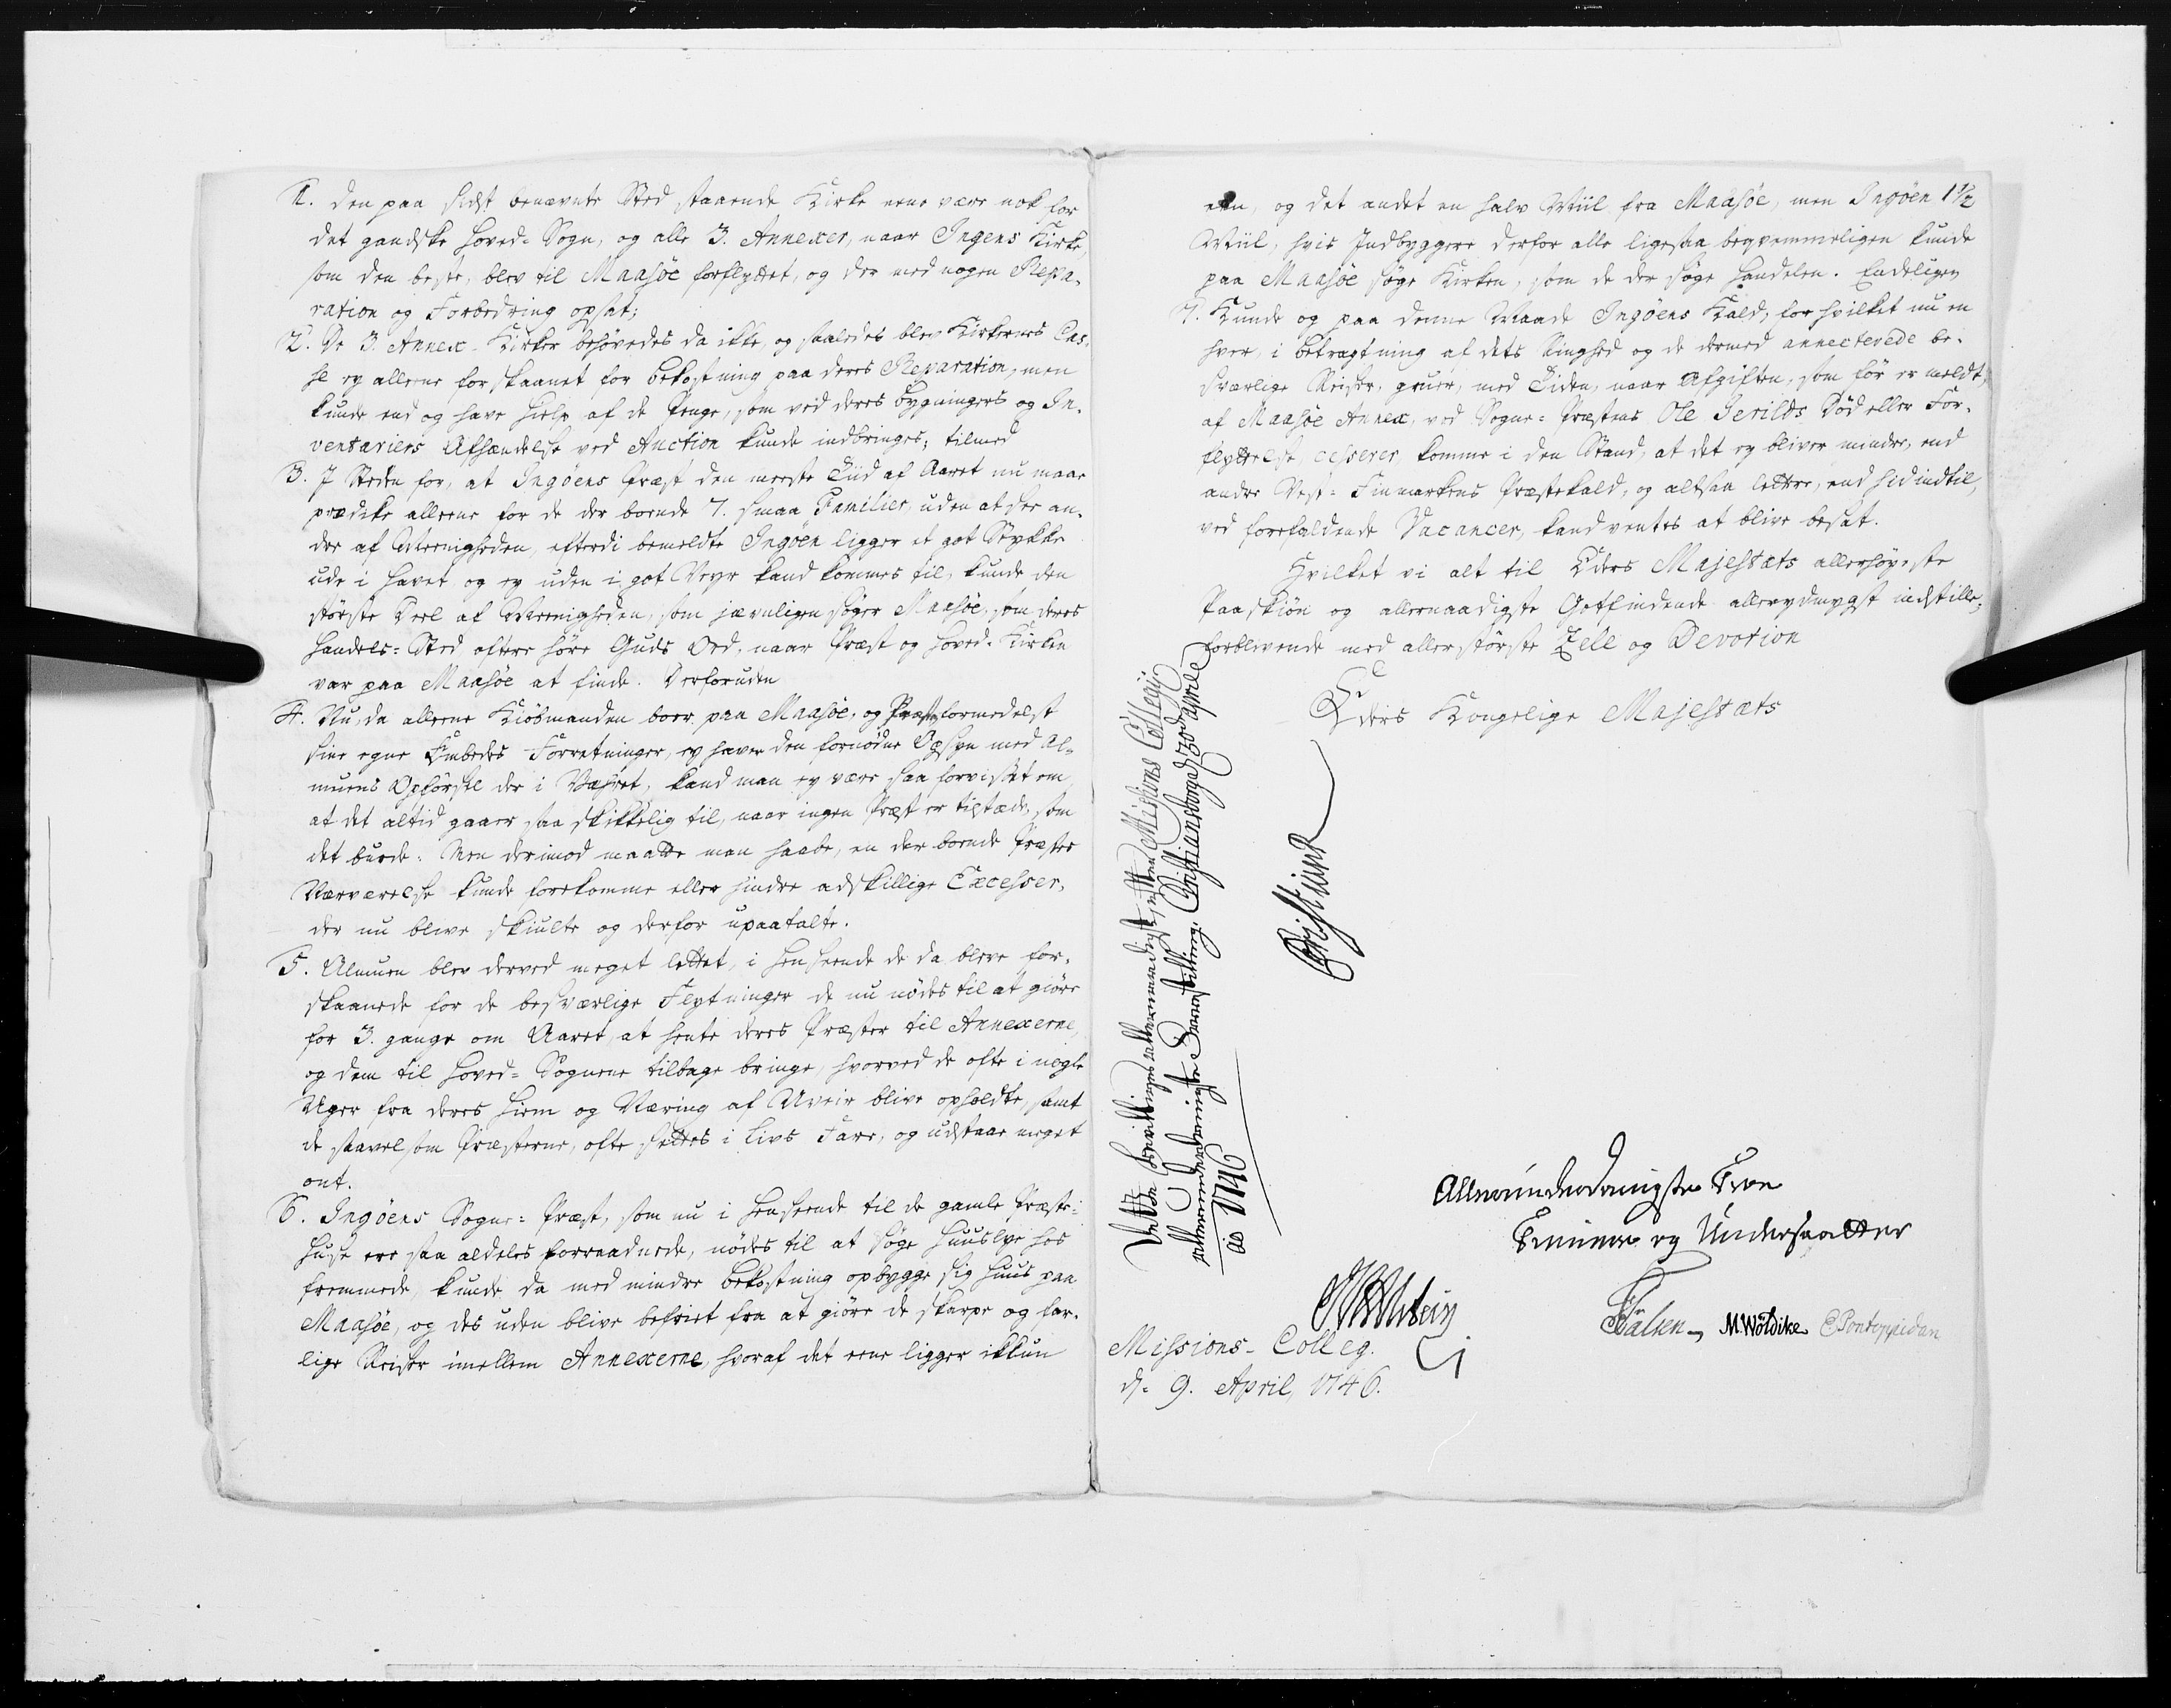 1. den paa sidst benævnte Sted staaende Kirke eene være nok for
det gandske Hoved-Sogn, og alle 3. Annexer, naar Ingens Kirke,
som den beste, blev til Maasøe forflyttet, og der med nogen Repa-
ration og Forbedring opsat;
2. De 3. Annex-Kirker behøvedes da ikke, og saaledes blev Kirkernes Cas-
se ey alleene forskaanet for bekostning paa deres Reparation, men
kunde end og have hielp af de Penge, som ved deres bygningers og In-
ventariers Afhændelse ved Auction kunde indbringes; tilmed
3. I Steden for, at Ingøens Præst den meeste Tiid af Aaret nu maae
prædike alleene for de der boende 7. smaa Familier, uden at see an-
dre af Meenigheden, efterdi bemeldte Ingøen ligger et got Stykke
ude i Havet og ey uden i got Veyr kand kommes til, kunde den
største Deel af Meenigheden, som jævnligen søger Maasøe, som deres
Handels-Sted oftere høre Guds Ord, naar Præst og Hoved-Kirken
var paa Maasøe at finde. Derforuden
4. Nu, da alleene Kiøbmanden boer paa Maasøe, og formedelst
sine egne Embeds Forretninger, ey haver den fornødne Opsyn med Al-
muens Opførsel der i Været, kand man ey være saa forvisset om
at det altid gaaer saa skikkelig til, naar ingen Præst er tilstæde, som
det burde: Men derimod maatte man haabe, en der boende Præstes
Nærværelse kunde forekomme eller hindre adskillige Excesser,
der nu blive skiulte og derfor upaatalte.
5. Almuen blev derved meget lettet, i henseende de da bleve for-
skaanede for de besværlige Flytninger de nu nødes til at giøre
for 3. gange om Aaret, at hente deres Præster til Annexerne,
og dem til Hoved-Sognene tilbage bringe, hvorved de ofte i nogle
Uger fra deres Hiem og Næring af Uveir blive opholdte, samt
de saavelsom Præsterne, ofte settes i Livs Fare, og udstaae meget
ont.
6. Ingøens Sogne-Præst, som nu i henseende til de gamle Præste-
Huse ere saa aldeles forraadnede, nødes til at søge huuslye hos
fremmede, kunde da med mindre bekostning opbygge sig Huus paa
Maasøe, og des uden blive befriet fra at giøre de skarpe og far-
lige Reiser imellem Annexerne, hvoraf det eene ligger ikkun
een, og det andet en halv Miil fra Maasøe, men Ingøen 1½
Miil, hvis Indbyggere derfor alle ligesaa beqvemmeligen kunde
paa Maasøe søge Kirken, som de der søge Handelen. Endeligen
7. Kunde og paa denne Maade Ingøens Kald, for hvilket nu en
hver, i betragtning af dets Ringhed og de dermed annecterede be-
sværlige Reiser, gruer, med Tiden, naar Afgiften, som før er meldt,
af Maasøe Annex, ved Sogne-Præstens Ole Jerilds Død eller For-
flyttelse, cesserer, komme i den Stand, at det ey bliver mindre, end
andre Vest-Finmarkens Præstekald, og altsaa lettere, end hidindtil,
ved forefaldende Vacancer, kand ventes at blive besat.
Hvilket vi alt til Eders Majestæts allerhøyeste
Paaskiøn og allernaadigste Gotfindende allerydmygst indstille,
forblivende med allerstørste Zele og Devotion
Eders Kongelige Majestæts
Dette bevilliges allernaadigst, efter Missions Collegij
allerunderdanigste Forestilling. Christiansborg d: 22de April
Ao 1746
Christian R
Allerunderdanigste Troe
Tienere og Undersaatter
JLHolstein
Falsen M. Wöldike EPontoppidan
Missions-Colleg.
d. 9. April, 1746.